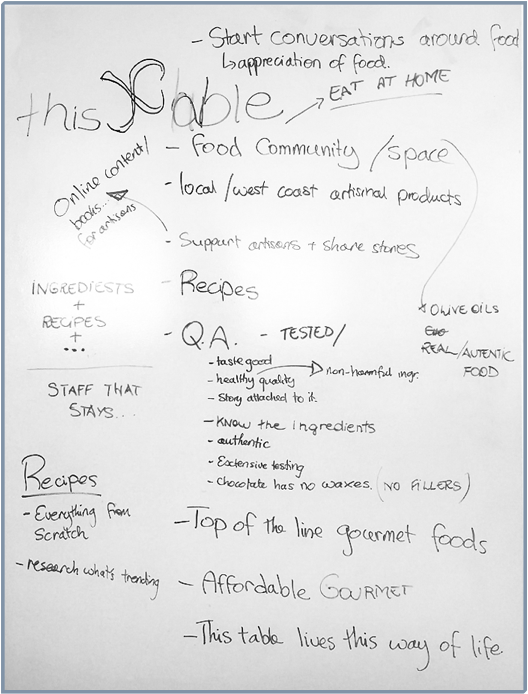 - Start conversations around food
↳ appreciation of food.
this table
EAT AT HOME
- food Community / space
- local / west coast artisinal products
Online content/
books...
for artisans
- Support artisans + share stories
- Recipes
INGREDIESTS
+
RECIPES
+
...
STAFF THAT
STAYS...
* OLIVE OILS
REAL / AUTENTIC
FOOD
- Q.A. - TESTED /
- taste good
- healthy quality → non-harmful ingr.
- Story attached to it.
- Know the ingredients
- authentic
- Extensive testing
- Chocolate has no waxes. (NO FILLERS)
Recipes
- Everything from
Scratch
- research what's trending
- Top of the line gourmet foods
- Affordable GOURMET
- This table lives this way of life.